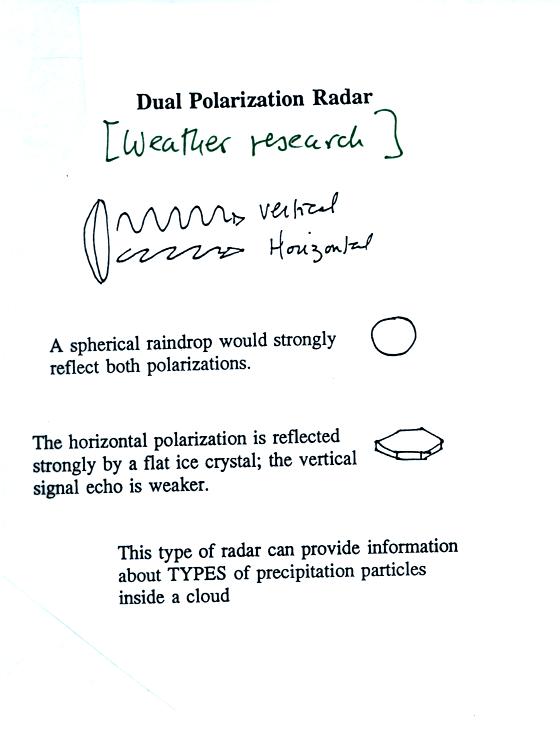 Dual Polarization Radar
[Weather research]
vertical
Horizontal
A spherical raindrop would strongly
reflect both polarizations.
The horizontal polarization is reflected
strongly by a flat ice crystal; the vertical
signal echo is weaker.
This type of radar can provide information
about TYPES of precipitation particles
inside a cloud